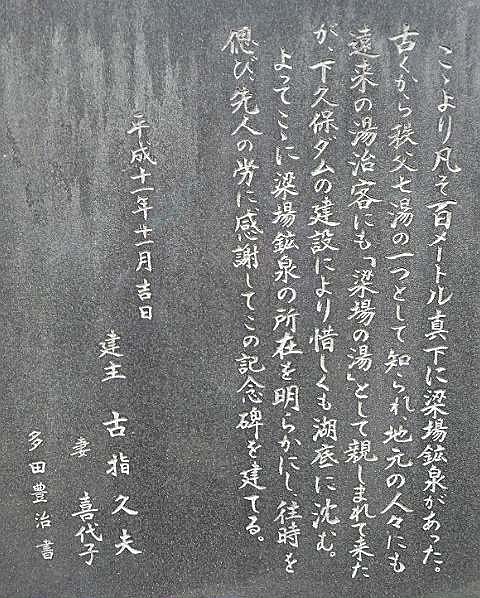 こゝより凡そ百メートル真下に梁場鉱泉があった。
古くから秩父七湯の一つとして知られ、地元の人々にも
遠来の湯治客にも「梁場の湯」として親しまれて来た
が、下久保ダムの建設により惜しくも湖底に沈む。
よってこゝに梁場鉱泉の所在を明らかにし、往時を
偲び、先人の労に感謝してこの記念碑を建てる。
平成十一年十一月吉日
建主 古指久夫
妻 喜代子
多田豊治書